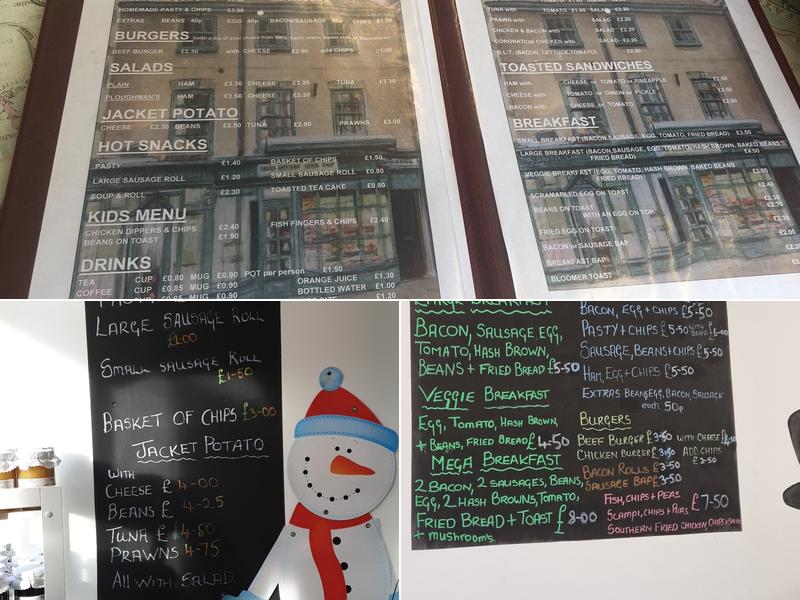 HOMEMADE PASTIES £3.
EXTRAS BEANS 40p EGG 40p BACON/SAUSAGE £1.00
BURGERS
BEEF BURGER £2.30 with CHEESE £2.60 add CHIPS £1.00
SALADS
PLAIN HAM £3.30 CHEESE £3.20 TUNA £3.30
PLOUGHMAN'S HAM £3.50 CHEESE £3.30
JACKET POTATO
CHEESE £2.30 BEANS £2.50 TUNA £2.80 PRAWNS £3.00
HOT SNACKS
PASTY £1.40 BASKET OF CHIPS £1.50
LARGE SAUSAGE ROLL £1.20 SMALL SAUSAGE ROLL £0.80
SOUP & ROLL £2.30 TOASTED TEA CAKE £0.80
KIDS MENU
CHICKEN DIPPERS & CHIPS £2.40 FISH FINGERS & CHIPS £2.40
BEANS ON TOAST £1.90
DRINKS
TEA CUP £0.80 MUG £0.90 POT per person £1.50 ORANGE JUICE £1.30
COFFEE CUP £0.85 MUG £0.90 BOTTLED WATER £1.00
TUNA with
PRAWN with SALAD £2.20
CHICKEN & BACON with SALAD £2.20
CORONATION CHICKEN with SALAD £2.20
B.L.T. (BACON, LETTUCE, TOMATO)
TOASTED SANDWICHES
HAM with CHEESE or TOMATO or PINEAPPLE
CHEESE with TOMATO or ONION or PICKLE £2.50
BACON with CHEESE or TOMATO
BREAKFAST
SMALL BREAKFAST (BACON, SAUSAGE, EGG, TOMATO, FRIED BREAD) £3.00
LARGE BREAKFAST (BACON, SAUSAGE, EGG, TOMATO, HASH BROWN, BAKED BEANS
FRIED BREAD) £4.00
VEGGIE BREAKFAST (EGG, TOMATO, HASH BROWN, BAKED BEANS
FRIED BREAD) £3.00
SCRAMBLED EGG ON TOAST
BEANS ON TOAST
WITH AN EGG ON TOP
FRIED EGG ON TOAST
BACON or SAUSAGE BAP
BREAKFAST BAP
BLOOMER TOAST
LARGE SAUSAGE ROLL
SMALL SAUSAGE ROLL
£1-50
BASKET OF CHIPS £3-00
JACKET POTATO
WITH
CHEESE £ 4-00
BEANS £ 4-25
TUNA £ 4-50
PRAWNS 4-75
ALL WITH SALAD.
LARGE BREAKFAST
BACON, SAUSAGE, EGG,
TOMATO, HASH BROWN,
BEANS + FRIED BREAD £5-50
VEGGIE BREAKFAST
EGG, TOMATO, HASH BROWN,
+ BEANS, FRIED BREAD £4-50
MEGA BREAKFAST
2 BACON, 2 SAUSAGES, BEANS,
EGG, 2 HASH BROWNS, TOMATO,
FRIED BREAD + TOAST £8-00
+ mushrooms.
BACON, EGG + CHIPS £5-50
PASTY + CHIPS £5-50 WITH BEANS £6-00
SAUSAGE, BEANS + CHIPS £5-50
HAM, EGG + CHIPS £5-50
EXTRAS BEANS, EGG, BACON, SAUSAGE
each 50p
BURGERS
BEEF BURGER £3-50 WITH CHEESE
CHICKEN BURGER £3-50 ADD CHIPS
£2-50
BACON ROLLS £3-50
SAUSAGE BAP £3-50
FISH, CHIPS + PEAS £7-50
SCAMPI, CHIPS + PEAS
SOUTHERN FRIED CHICKEN, CHIPS